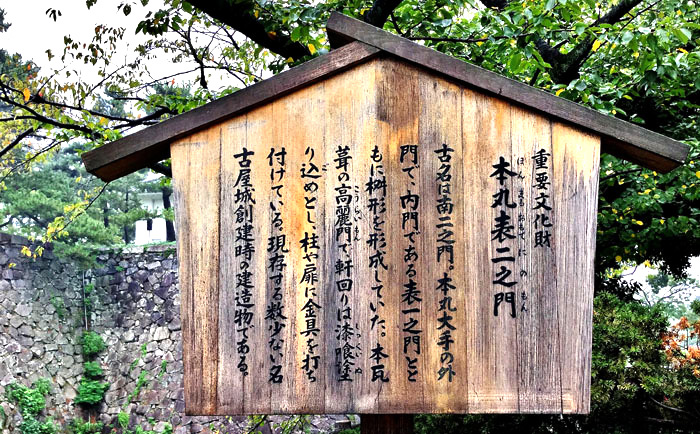 重要文化財
ほんまるおもてにのもん
本丸表二之門
古名は南二之門。本丸大手の外
門で、内門である表一之門とと
もに桝形を形成していた。本瓦
こうらいもん しっくいぬ
葺の高麗門で、軒回りは漆喰塗
ご
り込めとし、柱や扉に金具を打ち
付けている。現存する数少ない名
古屋城創建時の建造物である。